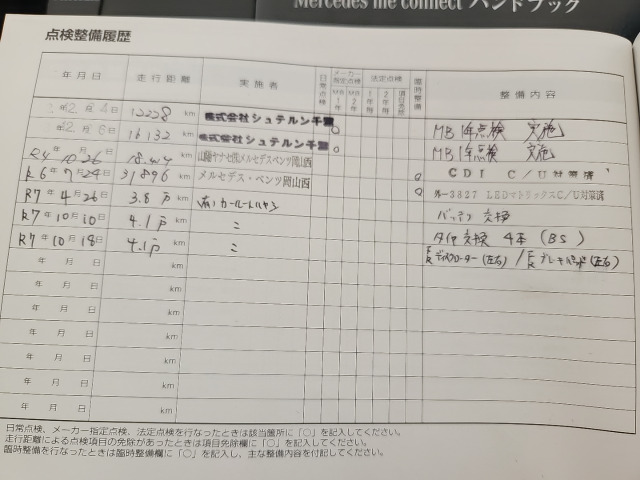 Mercedes me connect ハンドブック
点検整備履歴
年月日 走行距離 実施者 日常点検 メーカー指定点検 MB1年 MB2年 法定点検 1年毎 2年毎 臨時整備 整備内容
2年2月4日 12228 km 株式会社シュテルン千葉 ○ MB1年点検 実施
2月6日 16132 km 株式会社シュテルン千葉 ○ MB1年点検 実施
R4年10月26日 km 山陽ヤナセ㈱メルセデスベンツ岡山西 CDI C/U対策済
R6年7月24日 31896 km メルセデス・ベンツ岡山西 ○ 外-3827 LEDマトリックスC/U対策済
R7年4月26日 3.8万 km (有)カールートハヤシ バッテリ 交換
R7年10月10日 4.1万 km 〃 タイヤ交換 4本 (BS)
R7年10月18日 4.1万 km 〃 F/R ディスクローター(左右) / F/R ブレーキパッド(左右)
年 月 日 km
年 月 日 km
年 月 日 km
年 月 日 km
年 月 日 km
年 月 日 km
日常点検、メーカー指定点検、法定点検を行なったときは該当箇所に「○」を記入してください。
走行距離による点検項目の免除があったときは項目免除欄に「○」を記入してください。
臨時整備を行なったときは臨時整備欄に「○」を記入し、主な整備内容を付記してください。